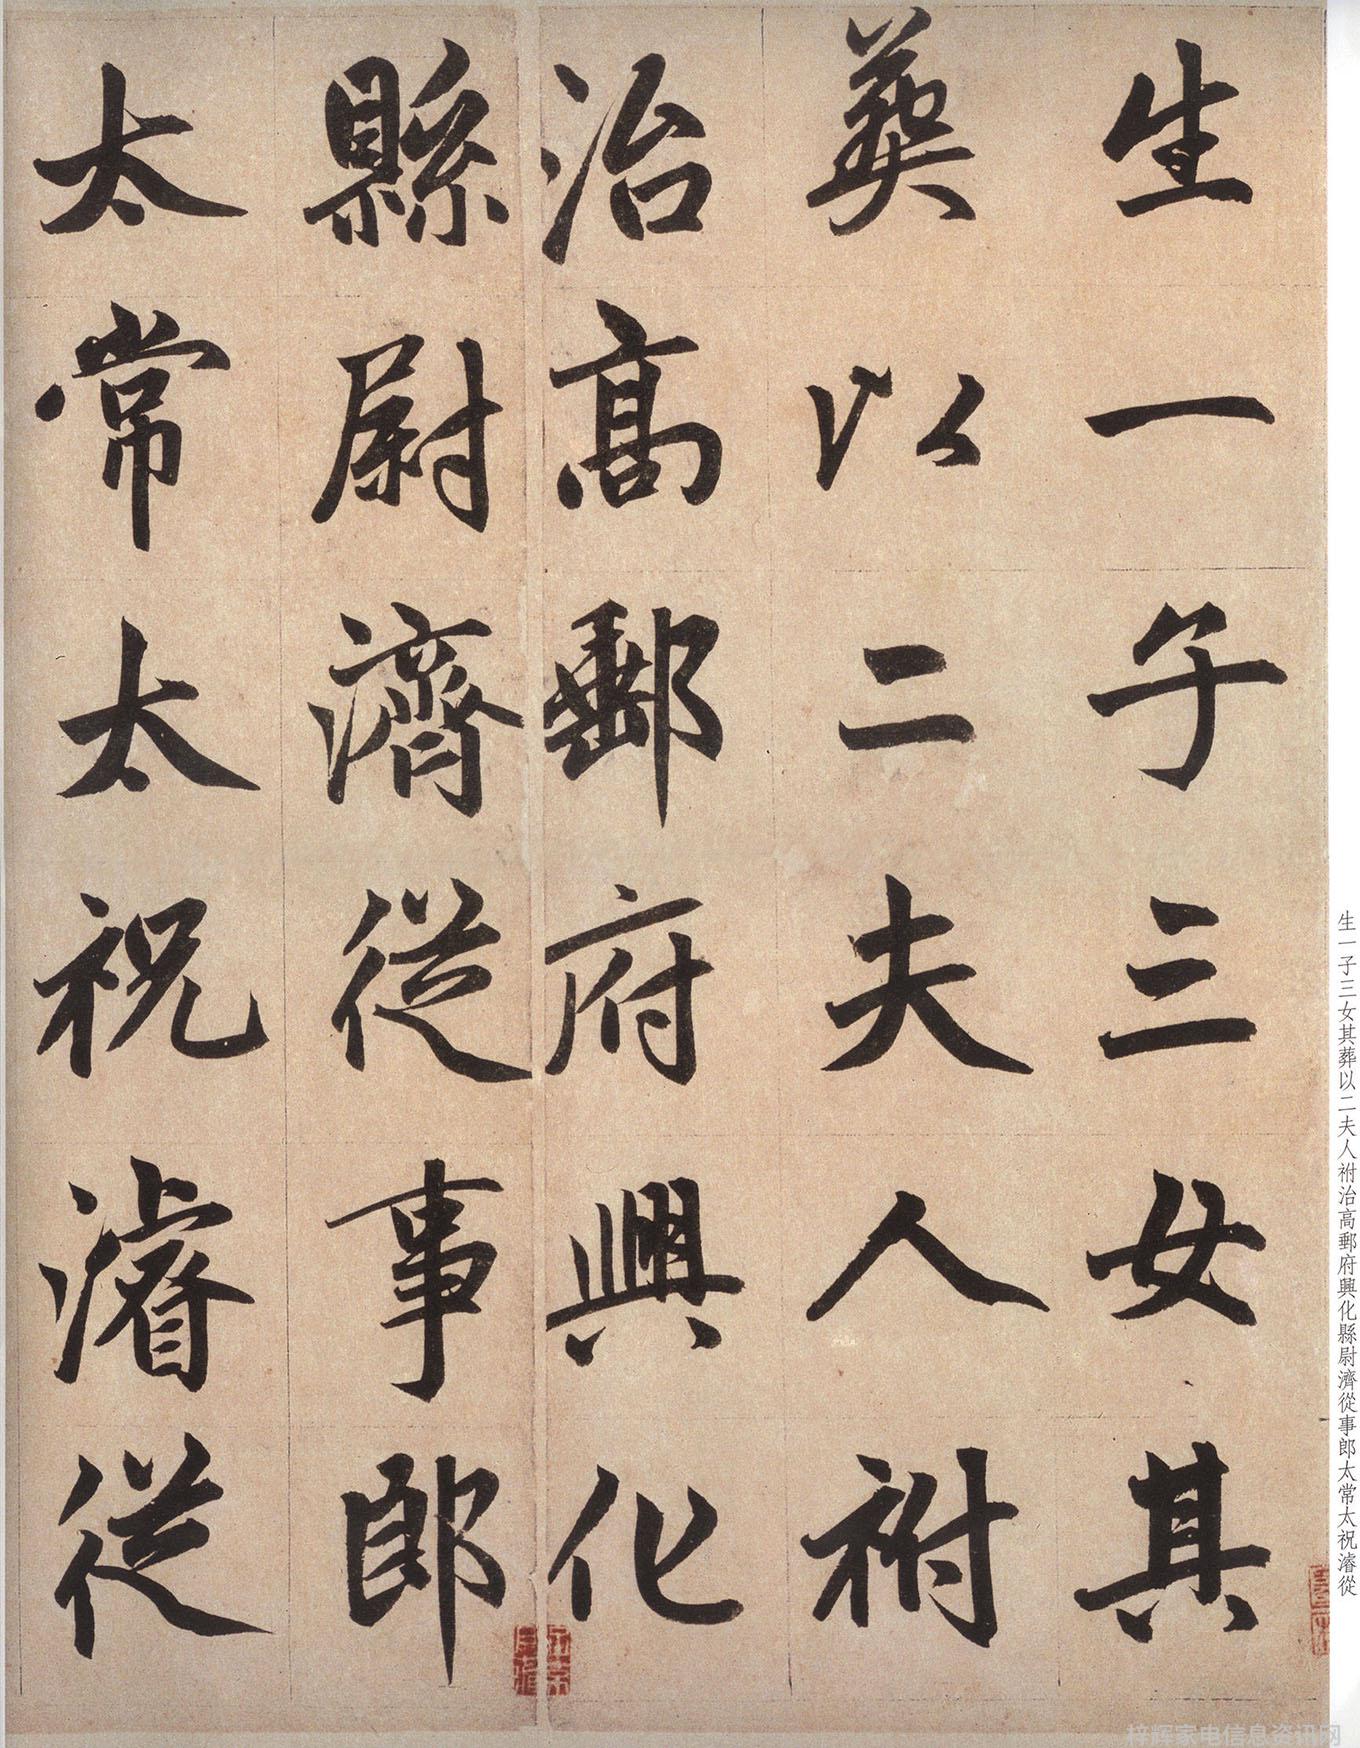 生一子三女其
葬以二夫人祔
治高郵府興化
縣尉濟從事郎
太常太祝濬從
生一子三女其葬以二夫人祔治高郵府興化縣尉濟從事郎太常太祝濬從
梓辉家电信息资讯网